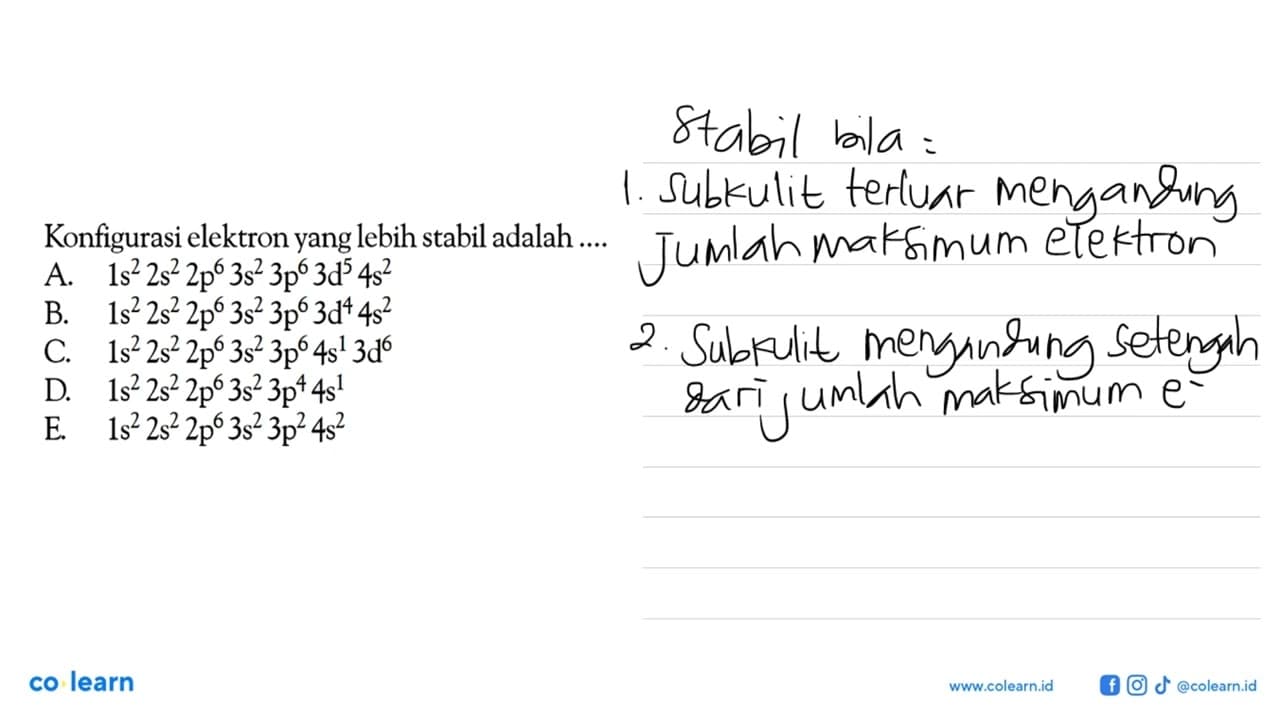 Konfigurasi elektron yang lebih stabil adalah ....
A. 1s² 2s² 2p⁶ 3s² 3p⁶ 3d⁵ 4s²
B. 1s² 2s² 2p⁶ 3s² 3p⁶ 3d⁴ 4s²
C. 1s² 2s² 2p⁶ 3s² 3p⁶ 4s¹ 3d⁶
D. 1s² 2s² 2p⁶ 3s² 3p⁴ 4s¹
E. 1s² 2s² 2p⁶ 3s² 3p² 4s²
Stabil bila :
1. Subkulit terluar mengandung
Jumlah maksimum elektron
2. Subkulit mengandung setengah
dari jumlah maksimum e⁻
co learn
www.colearn.id @colearn.id